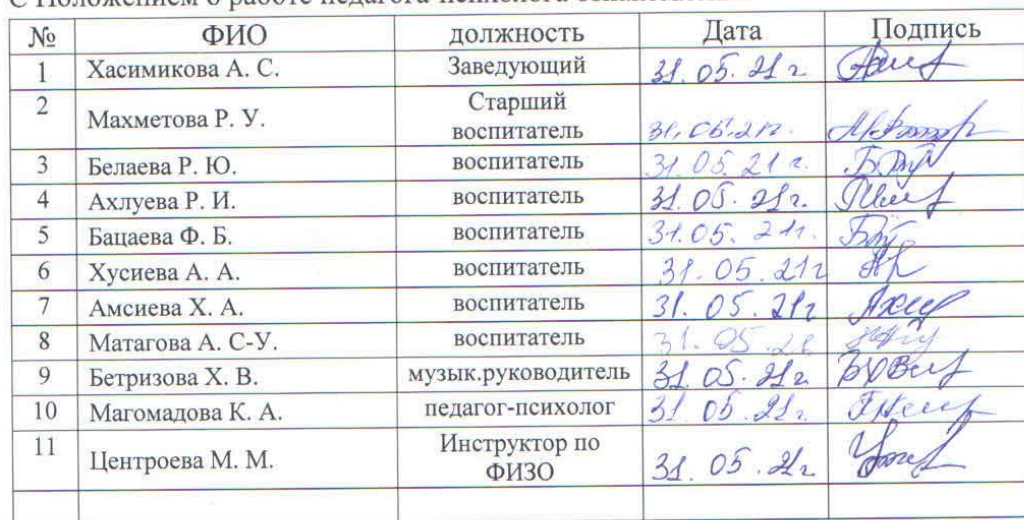 С Положением о работе педагога-психолога
№ ФИО должность Дата Подпись
1 Хасимикова А. С. Заведующий 31.05.21г
2 Махметова Р. У. Старший воспитатель 31.05.21г.
3 Белаева Р. Ю. воспитатель 31.05.21г.
4 Ахлуева Р. И. воспитатель 31.05.21г.
5 Бацаева Ф. Б. воспитатель 31.05.21г.
6 Хусиева А. А. воспитатель 31.05.21г
7 Амсиева Х. А. воспитатель 31.05.21г
8 Матагова А. С-У. воспитатель 31.05.21
9 Бетризова Х. В. музык.руководитель 31.05.21г
10 Магомадова К. А. педагог-психолог 31.05.21г
11 Центроева М. М. Инструктор по ФИЗО 31.05.21г